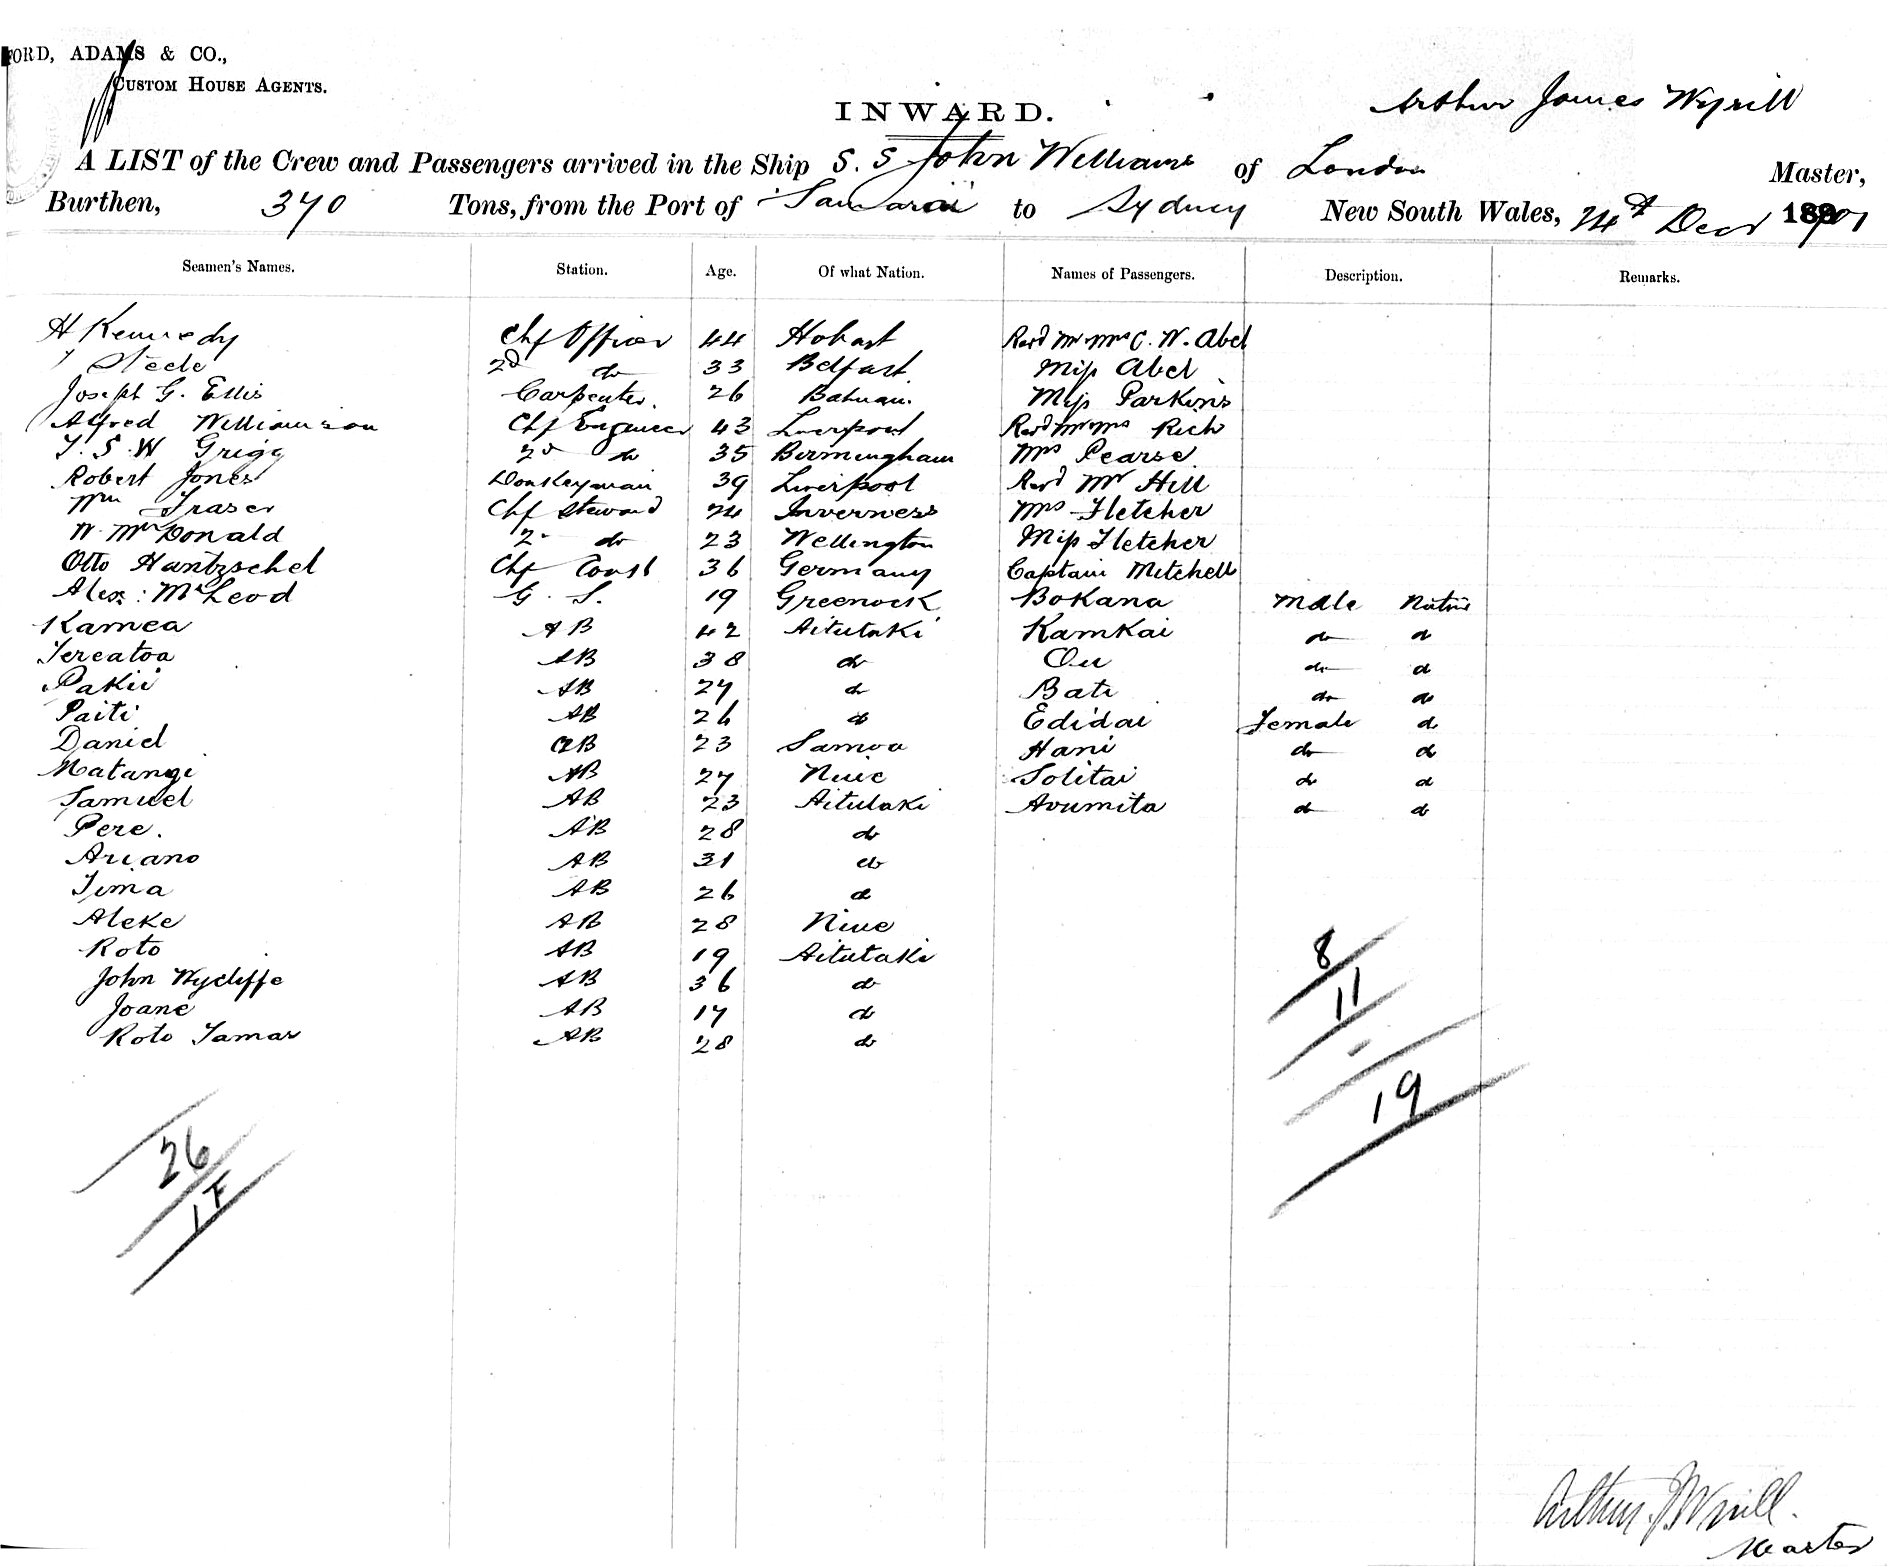 FORD, ADAMS & CO.,
CUSTOM HOUSE AGENTS.
INWARD.
Arthur James Wyrill
A LIST of the Crew and Passengers arrived in the Ship S. S John Williams of London Master,
Burthen, 370 Tons, from the Port of Samarai to Sydney New South Wales, 24th Decr 1901
Seamen's Names. Station. Age. Of what Nation. Names of Passengers. Description. Remarks.
H Kennedy Chf Officer 44 Hobart Revd Mr Mrs C. W. Abel
Steele 2d do 33 Belfast Miss Abel
Joseph G. Ellis Carpenter. 26 Miss Parkins
Alfred Williamson Chf Engineer 43 Liverpool Revd Mr Mrs Rich
T. S. W Grigg 2d do 35 Birmingham Mrs Pearse.
Robert Jones Donkeyman 39 Liverpool Revd Mr Hill
Wm Fraser Chf Steward 24 Inverness Mrs Fletcher
W. McDonald 2d do 23 Wellington Miss Fletcher
Otto Hantzschel Chf Cook 36 Germany Captain Mitchell
Alex: McLeod G. S. 19 Greenock Bokana Male Native
Kamea AB 42 Aitutaki Kamkai do do
Tereatoa AB 38 do Ou do do
Pakii AB 27 do Bati do do
Paiti AB 26 do Edidai Female do
Daniel AB 23 Samoa Hani do do
Matangi AB 27 Niue Solitai do do
Samuel AB 23 Aitutaki Avumita do do
Pere. AB 28 do
Ariano AB 31 do
Tima AB 26 do
Aleke AB 28 Niue
Roto AB 19 Aitutaki
John Wycliffe AB 36 do
Joane AB 17 do
Roto Tamas AB 28 do
8
11
19
26
1F
Arthur J Wyrill.
Master